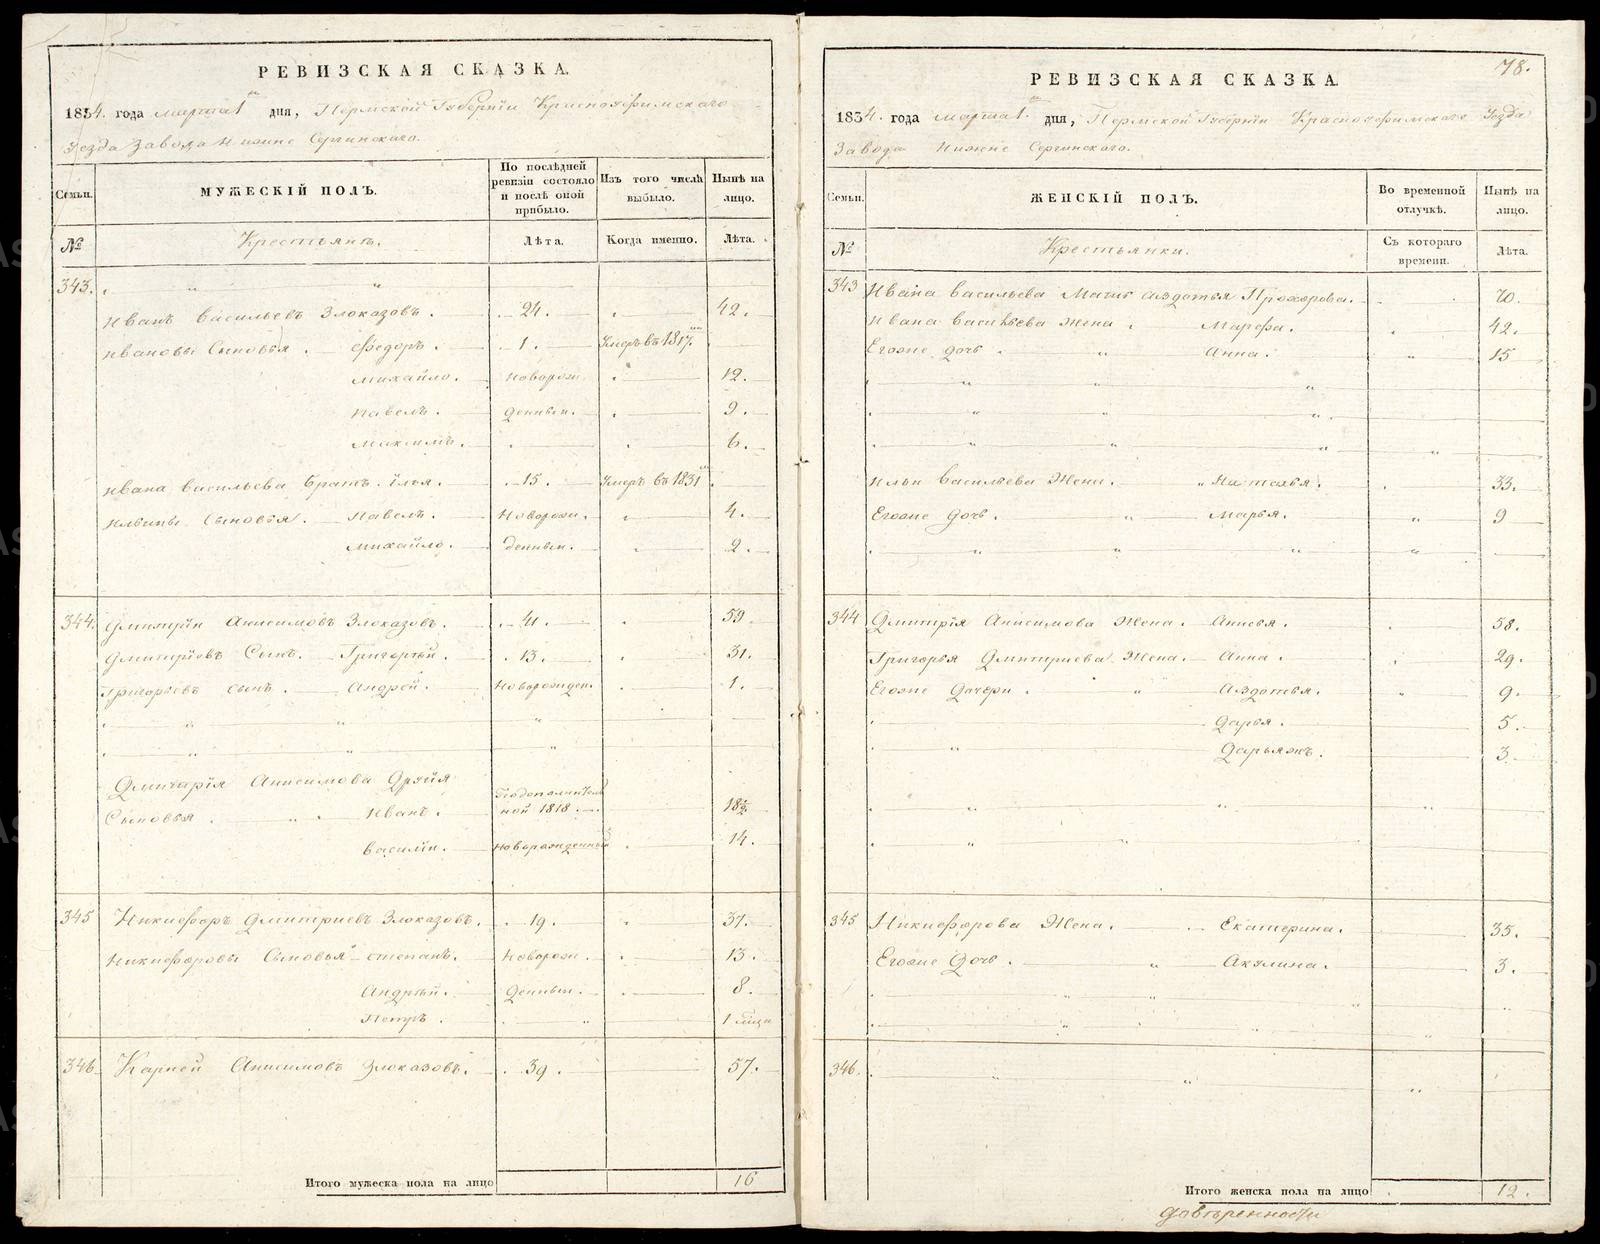 РЕВИЗСКАЯ СКАЗКА.
1834. года марта 1 дня, Пермской Губернии Красноуфимскаго
Уезда Завода Нижне Сергинскаго.
Семьи.
МУЖЕСКІЙ ПОЛЪ.
По послѣдней ревизіи состояло и послѣ оной прибыло.
Изъ того числа выбыло.
Нынѣ на лицо.
№
Крестьянъ.
Лѣта.
Когда именно.
Лѣта.
343.
Иванъ Васильевъ Злоказовъ. 24. 42.
Ивановы Сыновья. Федоръ. 1. Умеръ въ 1817.
Михайло. Новорож 12.
Павелъ. денныи. 9.
Максимъ. 6.
Ивана Васильева Братъ. Илья. 15. Умеръ въ 1831
Ильины Сыновья. Павелъ. Новорож. 4.
Михайло. денныи. 2.
344. Дмитрій Анисимовъ Злоказовъ. 41. 59.
Дмитріевъ Сынъ. Григорій. 13. 31.
Григорьевъ сынъ. Андрей. Новорожден. 1.
Дмитрія Анисимова Другія
Сыновья. Иванъ. ной 1818. 18½
Василій. Новорожденный 14.
345 Никифоръ Дмитриевъ Злоказовъ. 19. 37.
Никифоровы Сыновья Степанъ. Новорож. 13.
Андрей. денныи. 8.
Петръ. 1
346 Карпей Анисимовъ Злоказовъ. 39. 57.
Итого мужеска пола на лицо 16
78.
РЕВИЗСКАЯ СКАЗКА.
1834. года марта 1. дня, Пермской Губерніи Красноуфимскаго Уезда
Завода Нижне Сергинскаго.
Семьи.
ЖЕНСКІЙ ПОЛЪ.
Во временной отлучкѣ.
Нынѣ на лицо.
№
Крестьянки.
Съ котораго времени.
Лѣта.
343 Ивана Васильева Мать Авдотья Прохорова. 70.
Ивана Васильева Жена. Марфа. 42.
Егоже дочь. Анна. 15
Ильи Васильева Жена. Наталья. 33.
Егоже дочь. Марья. 9
344 Дмитрія Анисимова Жена. Анисья. 58.
Григорья Дмитриева Жена. Анна. 29.
Егоже Дочери. Авдотья. 9.
Дарья. 5.
3.
345 Никифорова Жена. Екатерина. 35.
Егоже Дочь. Акулина. 3.
346.
Итого женска пола на лицо 12.
довѣренности